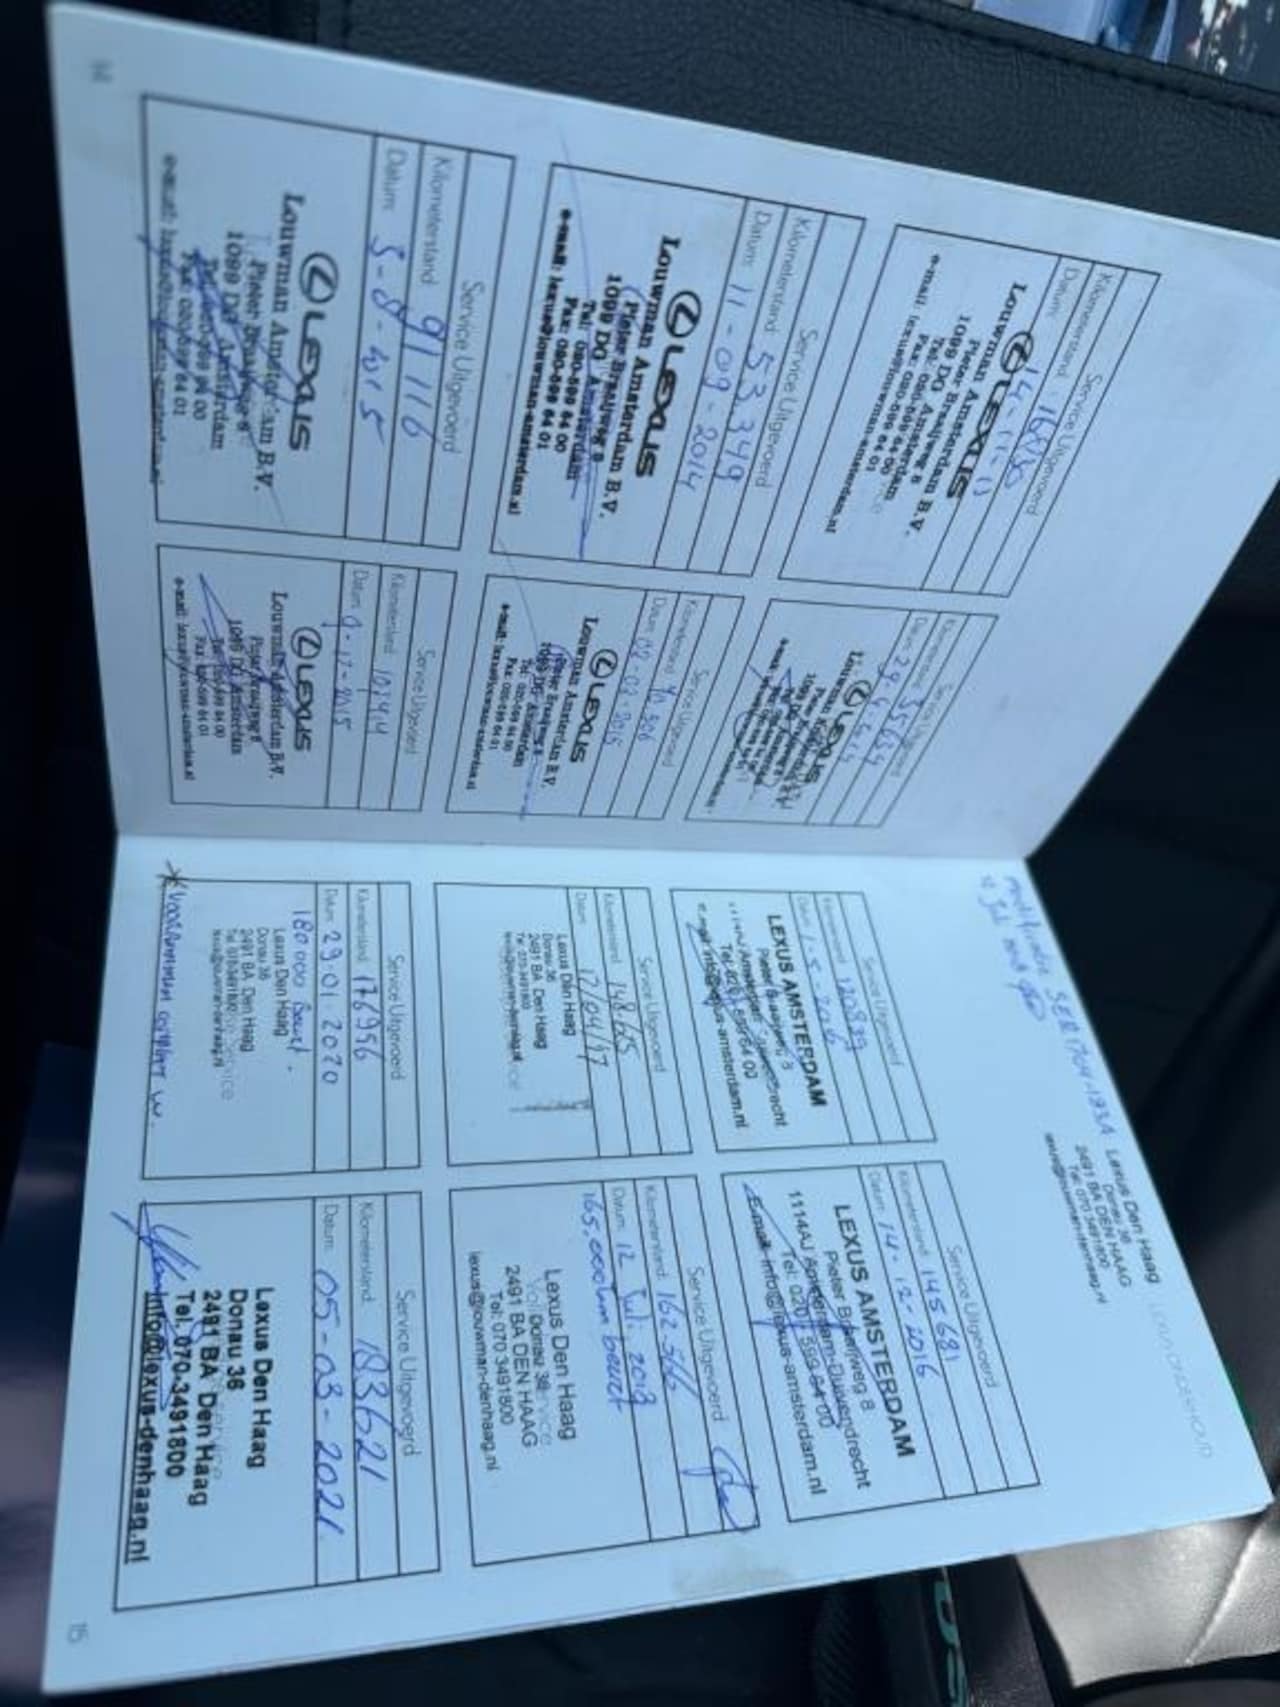 Service Uitgevoerd
Kilometerstand
Datum: 14-11-13
LEXUS
Louwman Amsterdam B.V.
Pieter Braaijweg 8
1099 DG Amsterdam
Tel: 020-599 64 00
Fax: 020-599 64 01
e-mail: lexus@louwman-amsterdam.nl
Service Uitgevoerd
Kilometerstand
Datum:
LEXUS
Service Uitgevoerd
Kilometerstand 53.349
Datum: 11-09-2014
LEXUS
Louwman Amsterdam B.V.
Pieter Braaijweg 8
1099 DG Amsterdam
Tel: 020-599 64 00
Fax: 020-599 64 01
e-mail: lexus@louwman-amsterdam.nl
Service Uitgevoerd
Kilometerstand
Datum:
LEXUS
Louwman Amsterdam B.V.
Pieter Braaijweg 8
1099 DG Amsterdam
Tel: 020-599 64 00
Fax: 020-599 64 01
e-mail: lexus@louwman-amsterdam.nl
Service Uitgevoerd
Kilometerstand 91116
Datum: 5-8-2015
LEXUS
Louwman Amsterdam B.V.
Pieter Braaijweg 8
1099 DG Amsterdam
Tel: 020-599 64 00
Fax: 020-599 64 01
e-mail: lexus@louwman-amsterdam.nl
Service Uitgevoerd
Kilometerstand
Datum: 9-12-2015
LEXUS
Louwman Amsterdam B.V.
Pieter Braaijweg 8
1099 DG Amsterdam
Tel: 020-599 64 00
Fax: 020-599 64 01
e-mail: lexus@louwman-amsterdam.nl
14
Lexus Den Haag
Donau 36
2491 BA DEN HAAG
Tel: 070 3491800
lexus@louwman-denhaag.nl
Service Uitgevoerd
Kilometerstand 120839
Datum:
LEXUS AMSTERDAM
Pieter Braaijweg 8
1114AJ Amsterdam-Duivendrecht
Tel: 020 / 599 64 00
E-mail: info@lexus-amsterdam.nl
Service Uitgevoerd
Kilometerstand: 145681
Datum: 14-12-2016
LEXUS AMSTERDAM
Pieter Braaijweg 8
1114AJ Amsterdam-Duivendrecht
Tel: 020 / 599 64 00
E-mail: info@lexus-amsterdam.nl
Service Uitgevoerd
Kilometerstand 148165
Datum: 12/04/17
Lexus Den Haag
Donau 36
2491 BA Den Haag
Tel: 070-3491800
Service Uitgevoerd
Kilometerstand: 162-566
Datum: 12 Juli 2018
165.000km beurt
Lexus Den Haag
Donau 36
2491 BA DEN HAAG
Tel: 070 3491800
lexus@louwman-denhaag.nl
Service Uitgevoerd
Kilometerstand 176956
Datum: 29.01.2020
180000 beurt.
Lexus Den Haag
Donau 36
2491 BA Den Haag
Tel: 070-3491800
Service Uitgevoerd
Kilometerstand: 183621
Datum: 05-03-2021
Lexus Den Haag
Donau 36
2491 BA Den Haag
Tel. 070-3491800
info@lexus-denhaag.nl
15